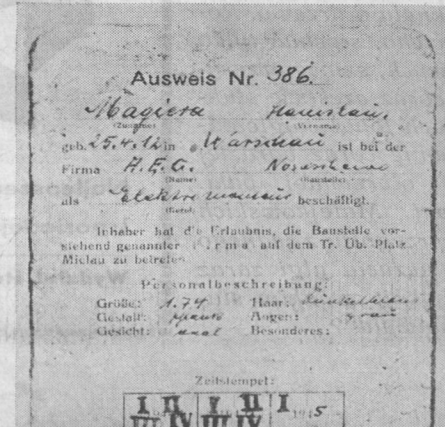 Ausweis Nr. 386.
Magiera Stanisław.
(Zuname) (Vorname)
geb. 25.4.12 in Warschau ist bei der
Firma A.E.G.
(Name) (Baustelle)
als beschäftigt.
(Beruf)
Inhaber hat die Erlaubnis, die Baustelle vor-
stehend genannter Firma auf dem Tr. Üb. Platz
Mielau zu betreten.
Personalbeschreibung:
Größe: 1.74 Haar:
Gestalt: Augen: grau
Gesicht: oval Besonderes:
Zeitstempel:
I II I II I 1945
III IV III IV